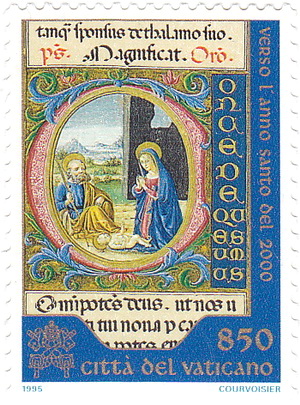 tanq̃ sponsus de thalamo suo.
p̃s. Magnificat. Oro.
ONCEDE QUES
UMUS
Om̃ipotẽs deus. ut nos u
tui nova p ca
VERSO L'ANNO SANTO DEL 2000
850
CITTÀ DEL VATICANO
1995
COURVOISIER